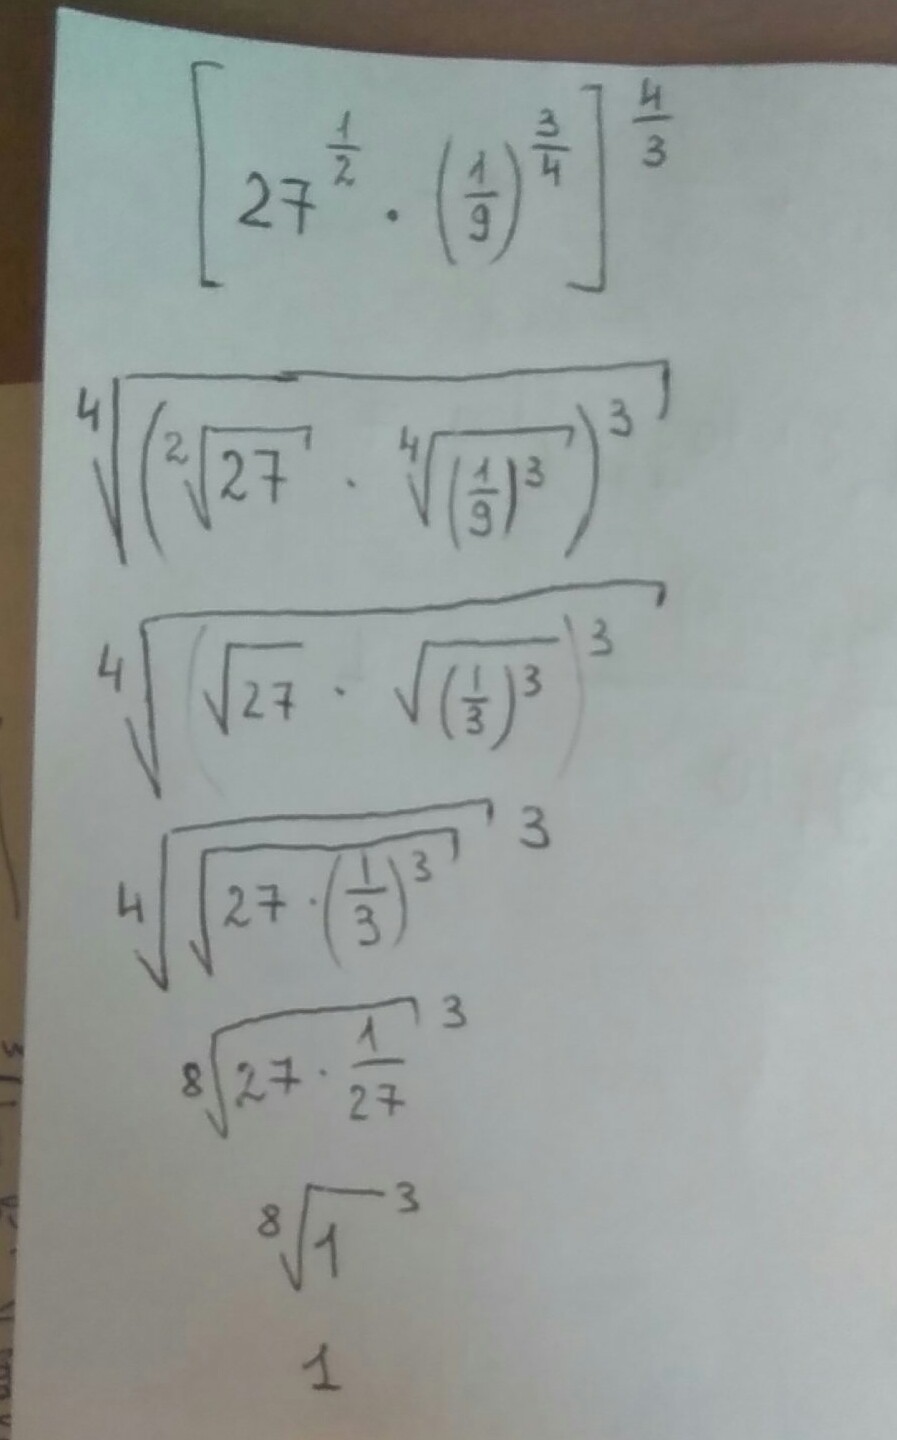 [27^{\frac{1}{2}} \cdot (\frac{1}{9})^{\frac{3}{4}}]^{\frac{4}{3}}
\sqrt[4]{(\sqrt[2]{27} \cdot \sqrt[4]{(\frac{1}{9})^3})^3}
\sqrt[4]{(\sqrt{27} \cdot \sqrt{(\frac{1}{3})^3})^3}
\sqrt[4]{\sqrt{27 \cdot (\frac{1}{3})^3}}^3
\sqrt[8]{27 \cdot \frac{1}{27}}^3
\sqrt[8]{1}^3
1